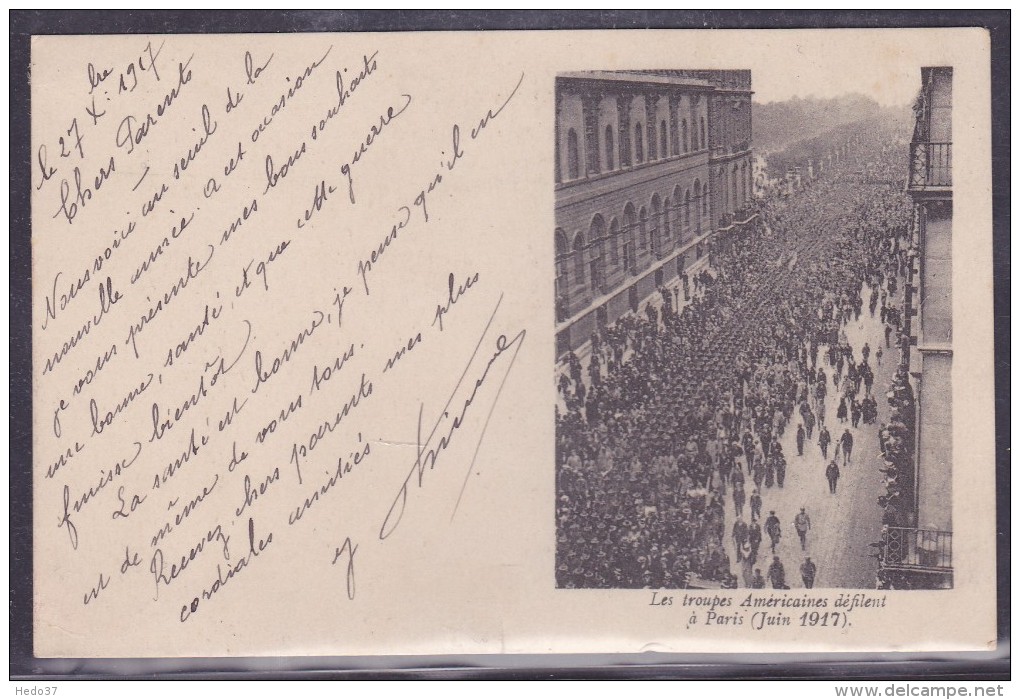 le 27 Xbre 1917
Chers Parents
Nous voici au seuil de la
nouvelle année. a cet occasion
je vous présente mes bons souhaits
une bonne, santé, et que cette guerre
finisse bientôt.
La santé est bonne, je pense qu'il en
est de même de vous tous.
Recevez, chers parents mes plus
cordiales amitiés
Les troupes Américaines défilent
à Paris (Juin 1917).
Hedo37
www.delcampe.net